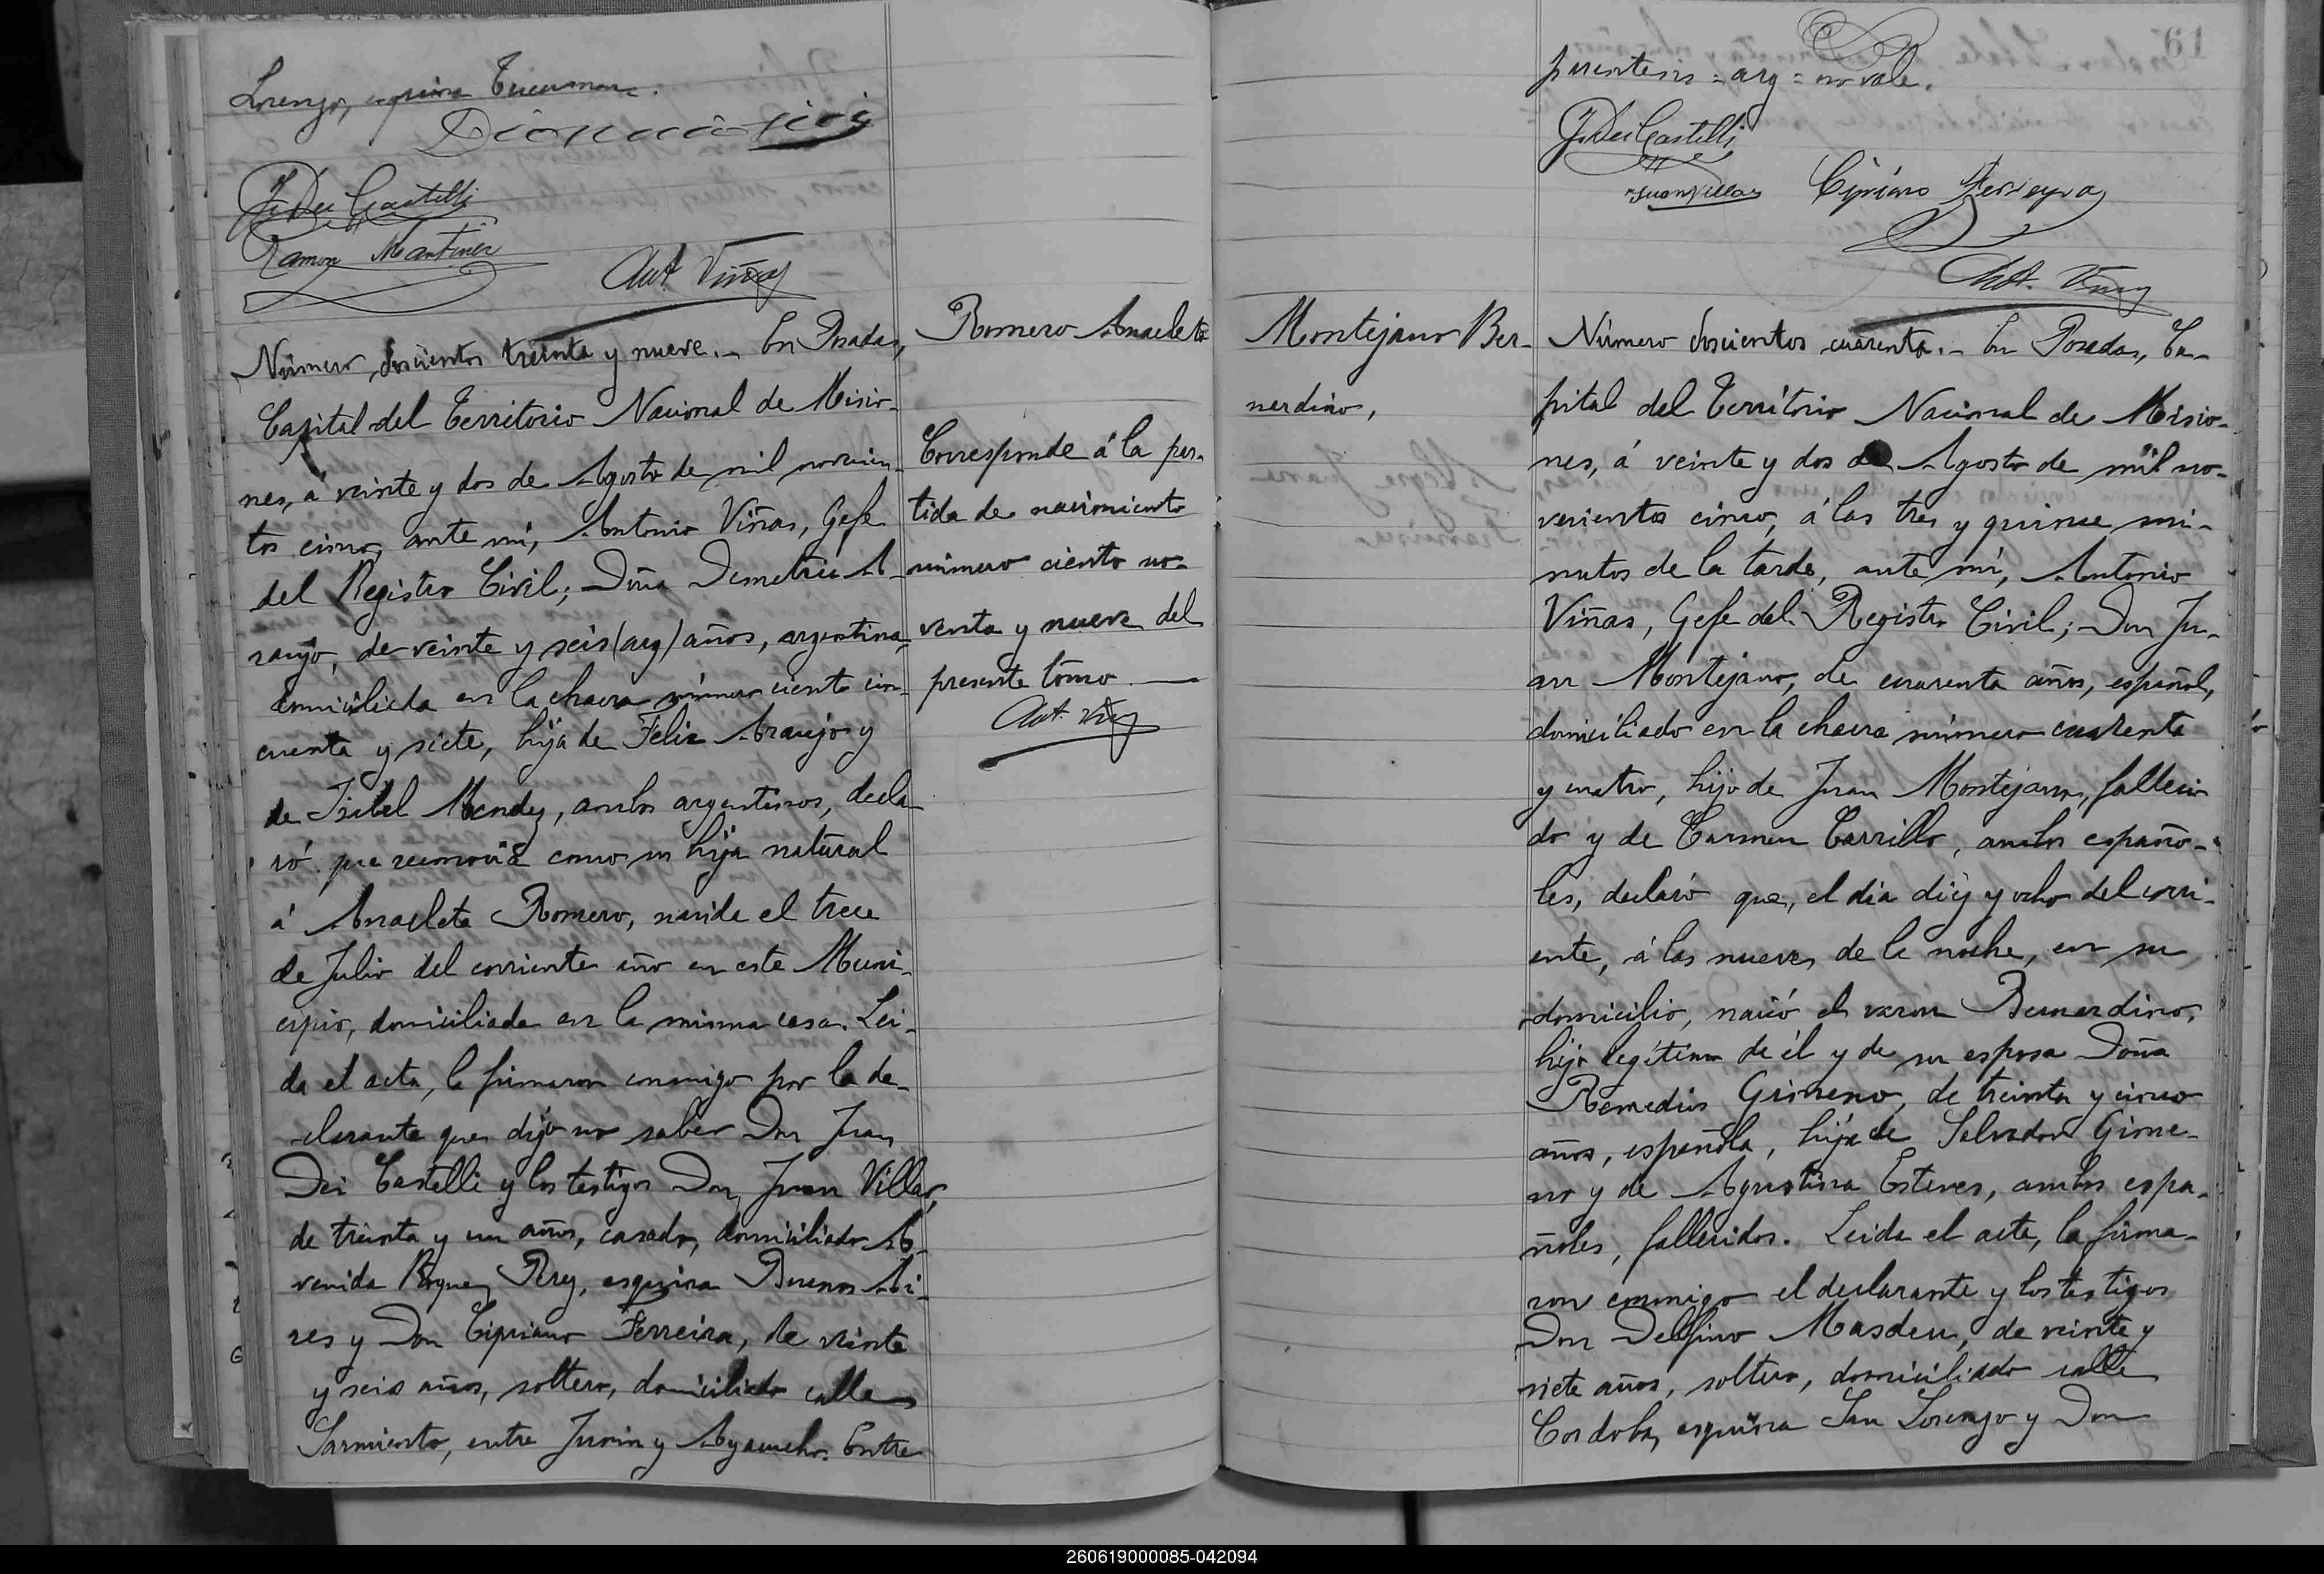 Lorenzo, esquina Tucuman.
J. Dei Castelli
Ramon Martinez
Ant. Viñas
Número doscientos treinta y nueve. - En Posadas,
Capital del Territorio Nacional de Misio-
nes, á veinte y dos de Agosto de mil novecien-
tos cinco, ante mí, Antonio Viñas, Gefe
del Registro Civil; Doña Demetria A-
raujo, de veinte y seis (arg) años, argentina,
domiciliada en la chacra número ciento cin-
cuenta y siete, hija de Felix Araujo y
de Isabel Mendez, ambos argentinos, decla-
ró que reconocia como su hija natural
á Anacleta Romero, nacida el trece
de Julio del corriente año en este Muni-
cipio, domiciliada en la misma casa. Lei-
da el acta, la firmaron conmigo por la de-
clarante que dijo no saber Don Juan
Dei Castelli y los testigos Don Juan Villar,
de treinta y un años, casado, domiciliado A-
venida Roque Rey, esquina Buenos Ai-
res y Don Cipriano Ferreira, de veinte
y seis años, soltero, domiciliado calle
Sarmiento, entre Junin y Ayacucho. Entre
Romero Anacleta
Corresponde á la par-
tida de nacimiento
número ciento no-
venta y nueve del
presente tomo. —
Ant. Viñas
61
parentesis = arg = no vale.
J. Dei Castelli
Juan Villar Cipriano Ferreyra
Ant. Viñas
Montejano Ber-
nardino,
Número doscientos cuarenta. - En Posadas, Ca-
pital del Territorio Nacional de Misio-
nes, á veinte y dos de Agosto de mil no-
vecientos cinco, á las tres y quince mi-
nutos de la tarde, ante mí, Antonio
Viñas, Gefe del Registro Civil; Don Ju-
an Montejano, de cuarenta años, español,
domiciliado en la chacra número cuarenta
y cuatro, hijo de Juan Montejano, falleci-
do y de Carmen Carrillo, ambos españo-
les, declaró que, el dia diez y ocho del corri-
ente, á las nueve de la noche, en su
domicilio, nació el varon Bernardino,
hijo legítimo de él y de su esposa Doña
Remedios Gimeno, de treinta y cinco
años, española, hija de Salvador Gime-
no y de Agustina Esteves, ambos espa-
ñoles, fallecidos. Leida el acta, la firma-
ron conmigo el declarante y los testigos
Don Delfino Masdeu, de veinte y
siete años, soltero, domiciliado calle
Cordoba, esquina San Lorenzo y Don
260619000085-042094